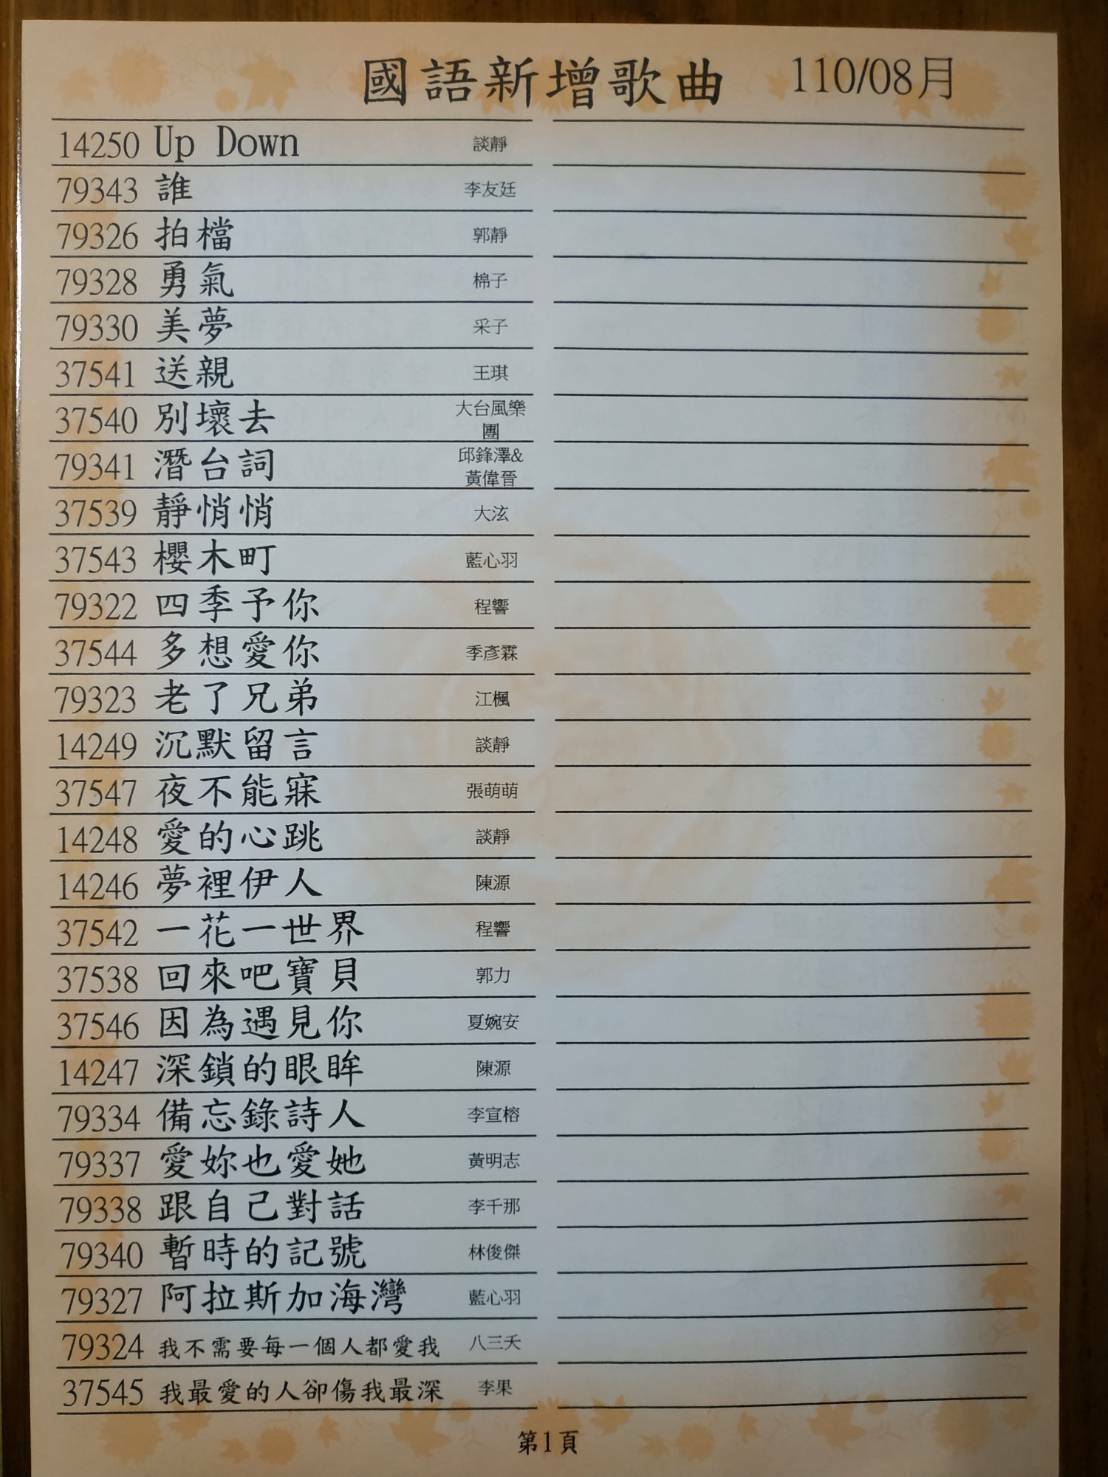 國語新增歌曲 110/08月
14250 Up Down 談靜
79343 誰 李友廷
79326 拍檔 郭靜
79328 勇氣 棉子
79330 美夢 采子
37541 送親 王琪
37540 別壞去 大台風樂
團
79341 潛台詞 邱鋒澤&
黃偉晉
37539 靜悄悄 大泫
37543 櫻木町 藍心羽
79322 四季予你 程響
37544 多想愛你 季彥霖
79323 老了兄弟 江楓
14249 沉默留言 談靜
37547 夜不能寐 張萌萌
14248 愛的心跳 談靜
14246 夢裡伊人 陳源
37542 一花一世界 程響
37538 回來吧寶貝 郭力
37546 因為遇見你 夏婉安
14247 深鎖的眼眸 陳源
79334 備忘錄詩人 李宣榕
79337 愛妳也愛她 黃明志
79338 跟自己對話 李千那
79340 暫時的記號 林俊傑
79327 阿拉斯加海灣 藍心羽
79324 我不需要每一個人都愛我 八三夭
37545 我最愛的人卻傷我最深 李果
第1頁